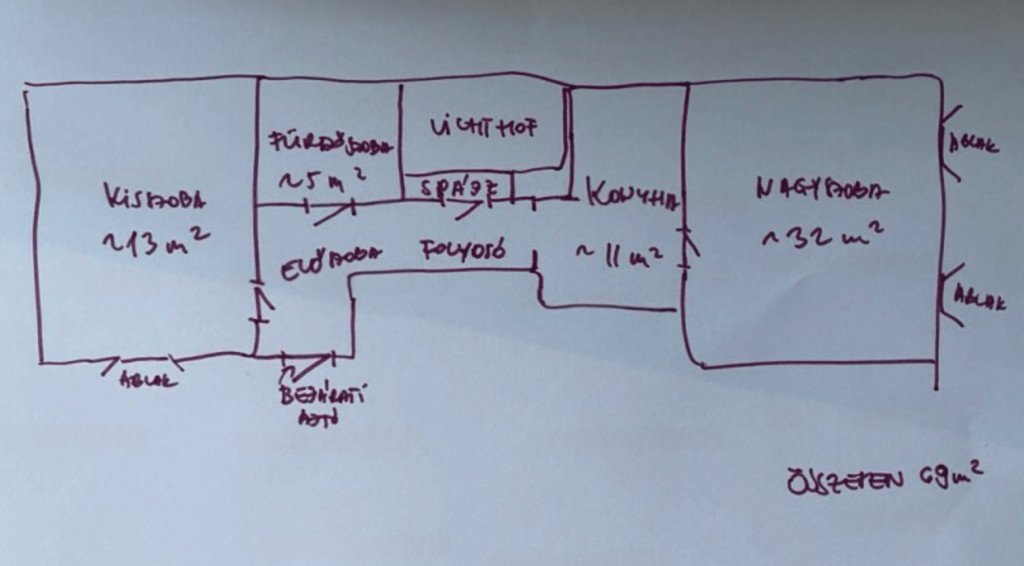 KISSZOBA
~13 m²
FÜRDŐSZOBA
~5 m²
LICHTHOF
SPÁJZ
KONYHA
~11 m²
NAGYSZOBA
~32 m²
ABLAK
ABLAK
ELŐSZOBA
FOLYOSÓ
ABLAK
BEJÁRATI
AJTÓ
ÖSSZESEN 69m²